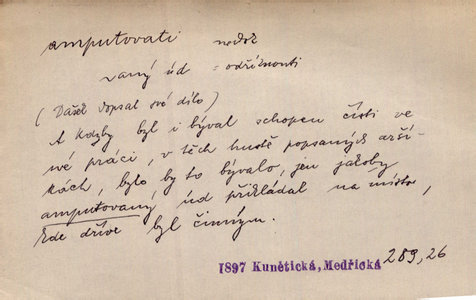 amputovati nedok
vaný úd = odříznouti
(Dašek dopsal své dílo)
A kdyby byl i býval schopen čísti ve
své práci, v těch hustě popsaných arší-
kách, bylo by to bývalo, jen jakoby
amputovaný úd přikládal na místo,
kde dříve byl činným.
1897 Kunětická, Medřická 289,26